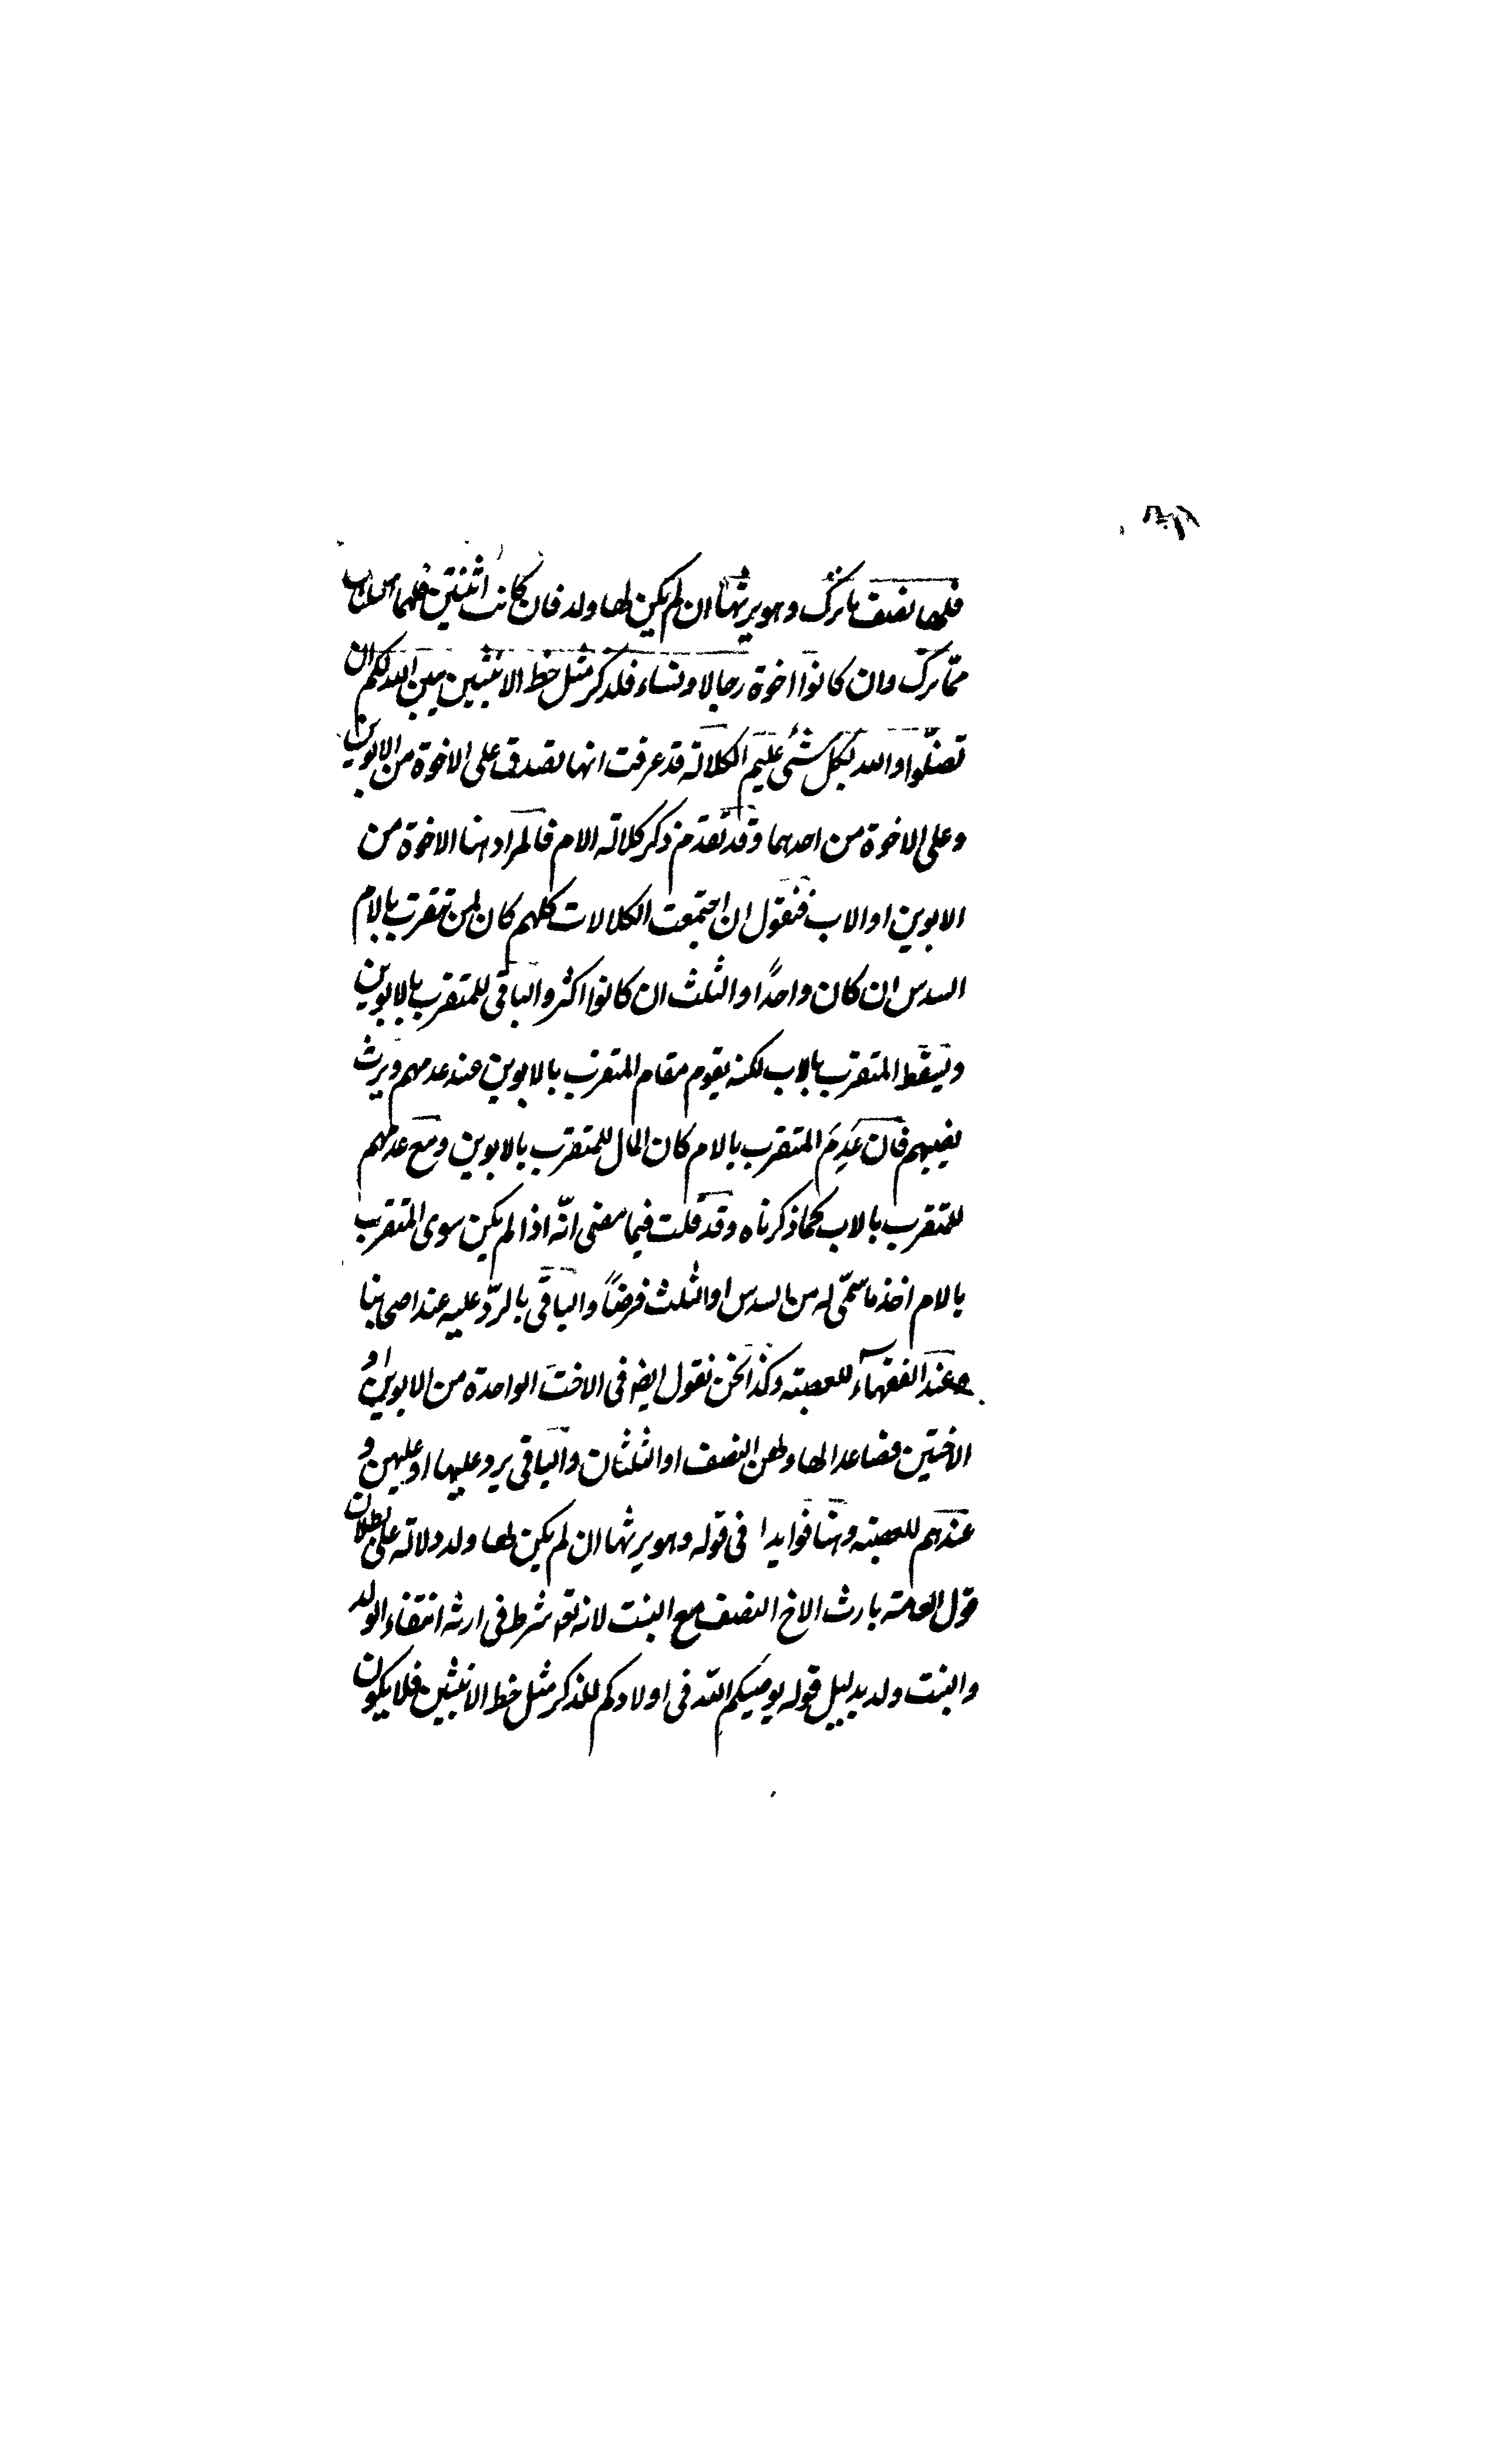 فلها نصف ما ترك وهو يرثها ان لم يكن لها ولد فان كانت اثنتين فلهما الثلثان
ممّا ترك وان كانوا اخوة رجالا ونساء فللذكر مثل حظ الانثيين يبين الله لكم ان
تضلّوا والله بكل شئ عليم الكلالة قد عرفت انها تصدق على الاخوة من الابوين
وعلى الاخوة من احدهما وقد تقدم ذكر كلالة الام فالمراد هنا الاخوة من
الابوين او الاب فنقول ان اجتمعت الكلالات كلهم كان لمن تقرب بالام
السدس ان كان واحدًا والثلث ان كانوا اكثر والباقى للمتقرب بالابوين
ويسقط المتقرب بالاب لكنه يقوم مقام المتقرب بالابوين عند عدمهم ويرث
نصيبهم فان عَدِمَ المتقرب بالام كان المال للمتقرب بالابوين ومع عدمهم
للمتقرب بالاب كما ذكرناه وقد قلت فيما مضى انّه اذا لم يكن سوى المتقرب
بالام اخذ ما سمّى له من السدس او الثلث فرضاً والباقى بالردّ عليه عند اصحابنا
وعند الفقهاء للعصبة وكذا نحن نقول ايضا فى الاخت الواحدة من الابوين او
الاختين فصاعدا لها ولهن النصف او الثلثان والباقى يرد عليها او عليهن و
عندهم للعصبة وهنا فوايد ا فى قوله وهو يرثها ان لم يكن لها ولد دلالة على بطلان
قول العامة بارث الاخ النصف مع البنت لانه تع شرط فى ارثه انتفاء الولد
والبنت ولد بدليل قوله يوصيكم الله فى اولادكم للذكر مثل حظ الانثيين فلا يكون